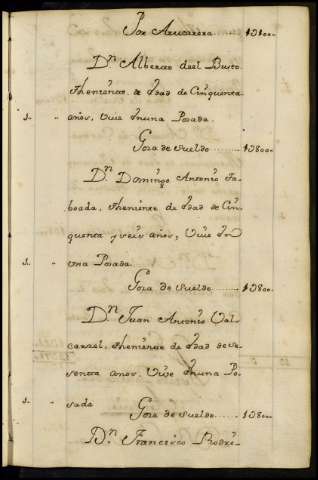 Por Azucarera ..... 1 D 100„
Dn. Alberto del Busto
Theniente, de Edad de Cinquenta
1. „ años, Vive En una Posada.
Goza de sueldo ..... 1 D 800„
Dn. Domingo Antonio Ta-
boada, Theniente de Edad de Cin-
quenta y seis años, Vive En
1. „ una Posada.
Goza de sueldo ..... 1 D 800„
Dn. Juan Antonio Val-
carzel, Theniente de Edad de Se-
senta años, Vive En una Po-
1. „ sada
Goza de sueldo ..... 1 D 800„
Dn. Francisco Rodri-